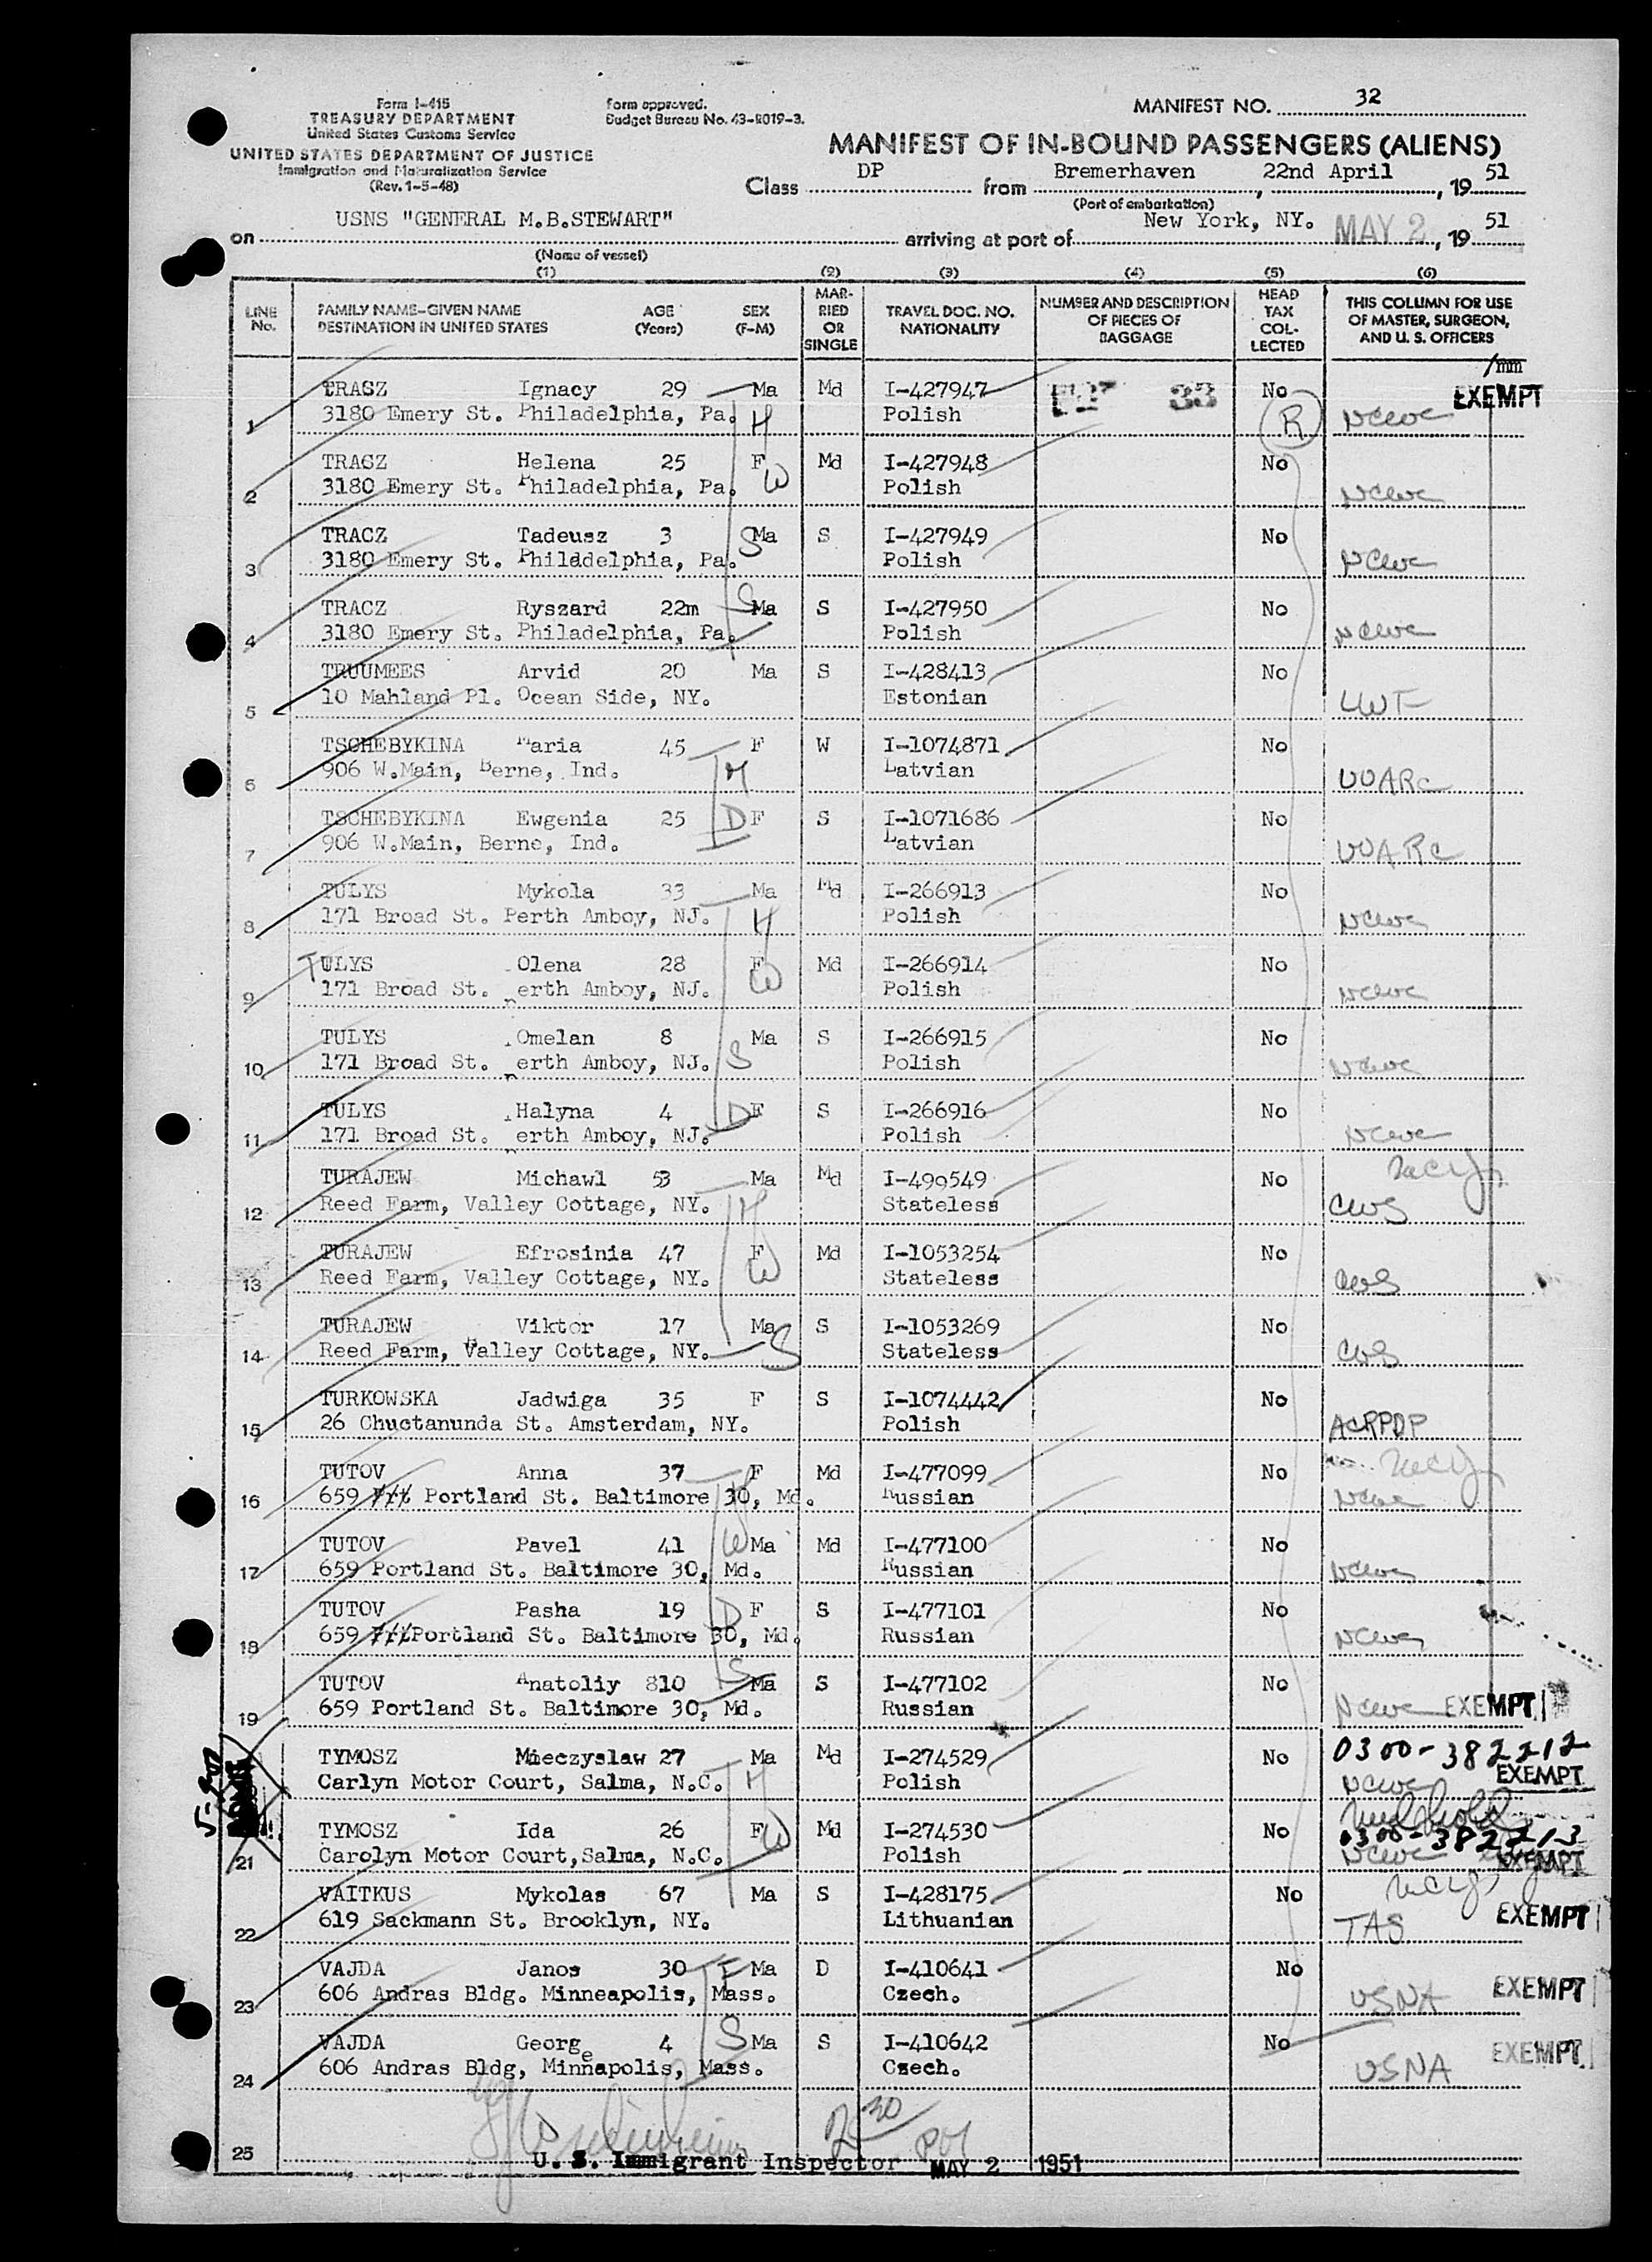 Form I-415
TREASURY DEPARTMENT
United States Customs Service
UNITED STATES DEPARTMENT OF JUSTICE
Immigration and Naturalization Service
(Rev. 1-5-48)
Form approved.
Budget Bureau No. 43-R019-3.
MANIFEST NO. 32
MANIFEST OF IN-BOUND PASSENGERS (ALIENS)
Class DP from Bremerhaven, 22nd April, 19 51
(Port of embarkation)
on USNS "GENERAL M.B.STEWART" arriving at port of New York, NY. MAY 2, 19 51
(Name of vessel)
(1) (2) (3) (4) (5) (6)
LINE No.
FAMILY NAME-GIVEN NAME
DESTINATION IN UNITED STATES
AGE (Years)
SEX (F-M)
MARRIED OR SINGLE
TRAVEL DOC. NO. NATIONALITY
NUMBER AND DESCRIPTION OF PIECES OF BAGGAGE
HEAD TAX COLLECTED
THIS COLUMN FOR USE OF MASTER, SURGEON, AND U. S. OFFICERS
/mm
1 TRASZ Ignacy 29 Ma Md I-427947 33 No EXEMPT
3180 Emery St. Philadelphia, Pa. H Polish R NCWC
2 TRACZ Helena 25 F Md I-427948 No
3180 Emery St. Philadelphia, Pa. W Polish NCWC
3 TRACZ Tadeusz 3 S Ma S I-427949 No
3180 Emery St. Philadelphia, Pa. Polish NCWC
4 TRACZ Ryszard 22m S Ma S I-427950 No
3180 Emery St. Philadelphia, Pa. Polish NCWC
5 TRUUMEES Arvid 20 Ma S I-428413 No
10 Mahland Pl. Ocean Side, NY. Estonian LWF
6 TSCHEBYKINA Maria 45 F W I-1074871 No
906 W.Main, Berne, Ind. M Latvian UUARC
7 TSCHEBYKINA Ewgenia 25 D F S I-1071686 No
906 W.Main, Berne, Ind. Latvian UUARC
8 TULYS Mykola 33 Ma Md I-266913 No
171 Broad St. Perth Amboy, NJ. H Polish NCWC
9 TULYS Olena 28 F Md I-266914 No
171 Broad St. erth Amboy, NJ. W Polish NCWC
10 TULYS Omelan 8 Ma S I-266915 No
171 Broad St. erth Amboy, NJ. S Polish NCWC
11 TULYS Halyna 4 D F S I-266916 No
171 Broad St. erth Amboy, NJ. Polish NCWC
12 TURAJEW Michawl 53 Ma Md I-499549 No
Reed Farm, Valley Cottage, NY. H Stateless CWS
13 TURAJEW Efrosinia 47 F Md I-1053254 No
Reed Farm, Valley Cottage, NY. W Stateless CWS
14 TURAJEW Viktor 17 Ma S I-1053269 No
Reed Farm, Valley Cottage, NY. S Stateless CWS
15 TURKOWSKA Jadwiga 35 F S I-1074442 No
26 Chuctanunda St. Amsterdam, NY. Polish ACRPDP
16 TUTOV Anna 37 F Md I-477099 No
659 Portland St. Baltimore 30, Md. Russian NCWC
17 TUTOV Pavel 41 W Ma Md I-477100 No
659 Portland St. Baltimore 30, Md. Russian NCWC
18 TUTOV Pasha 19 D F S I-477101 No
659 Portland St. Baltimore 30, Md. Russian NCWC
19 TUTOV Anatoliy 810 S Ma S I-477102 No
659 Portland St. Baltimore 30, Md. Russian NCWC EXEMPT
TYMOSZ Mieczyslaw 27 Ma Md I-274529 No 0300-382212
Carlyn Motor Court, Salma, N.C. H Polish NCWC EXEMPT
21 TYMOSZ Ida 26 F W Md I-274530 No 0300-382213
Carolyn Motor Court,Salma, N.C. Polish NCWC EXEMPT
22 VAITKUS Mykolas 67 Ma S I-428175 No
619 Sackmann St. Brooklyn, NY. Lithuanian TAS EXEMPT
23 VAJDA Janos 30 F Ma D I-410641 No
606 Andras Bldg. Minneapolis, Mass. Czech. USNA EXEMPT
24 VAJDA George 4 S Ma S I-410642 No
606 Andras Bldg, Minneapolis, Mass. Czech. USNA EXEMPT
25
U. S. Immigrant Inspector MAY 2 1951